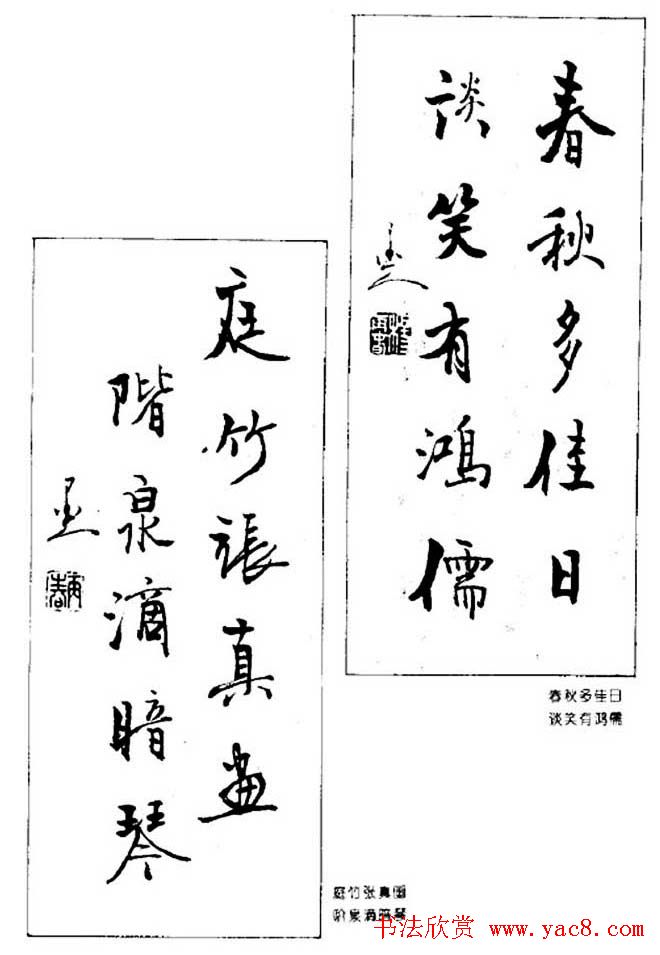 春秋多佳日
談笑有鴻儒
春秋多佳日
谈笑有鸿儒
庭竹張真畫
階泉滴暗琴
庭竹张真画
阶泉滴暗琴
书法欣赏 www.yac8.com